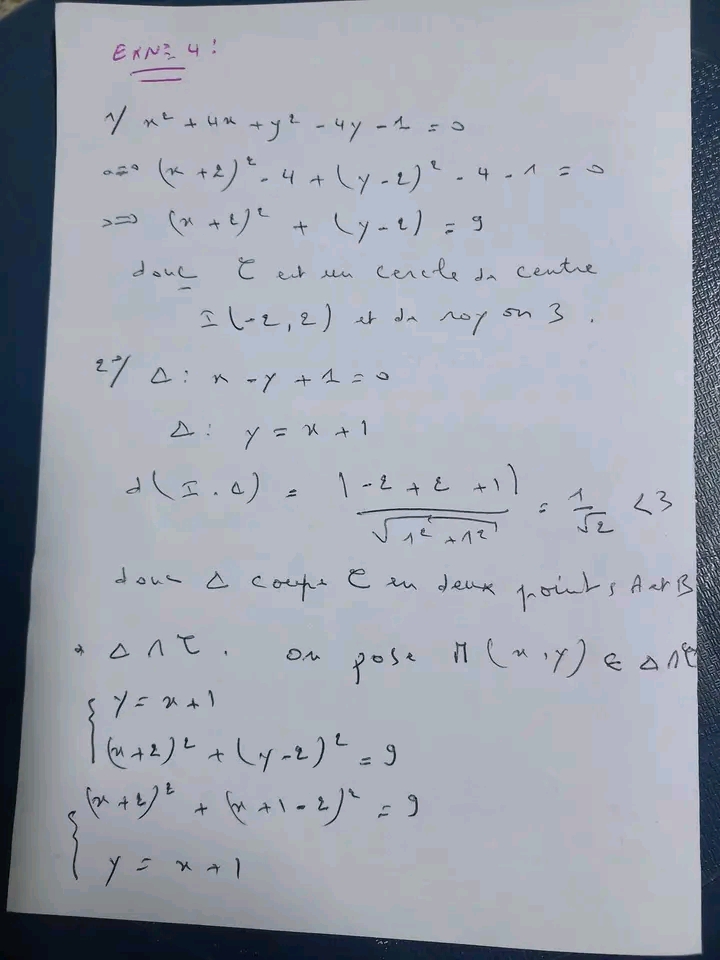 EXN° 4 :
1°/ x² + 4x + y² - 4y - 1 = 0
<=> (x + 2)² - 4 + (y - 2)² - 4 - 1 = 0
<=> (x + 2)² + (y - 2) = 9
donc C est un cercle de centre
I(-2, 2) et de rayon 3.
2°/ Δ : x - y + 1 = 0
Δ : y = x + 1
d(I. Δ) = |-2 + 2 + 1| / √(1² + 1²) = 1/√2 < 3
donc Δ coupe C en deux points A et B
* Δ ∩ C. on pose M(x, y) ∈ Δ ∩ C
{ y = x + 1
(x + 2)² + (y - 2)² = 9
{ (x + 2)² + (x + 1 - 2)² = 9
y = x + 1